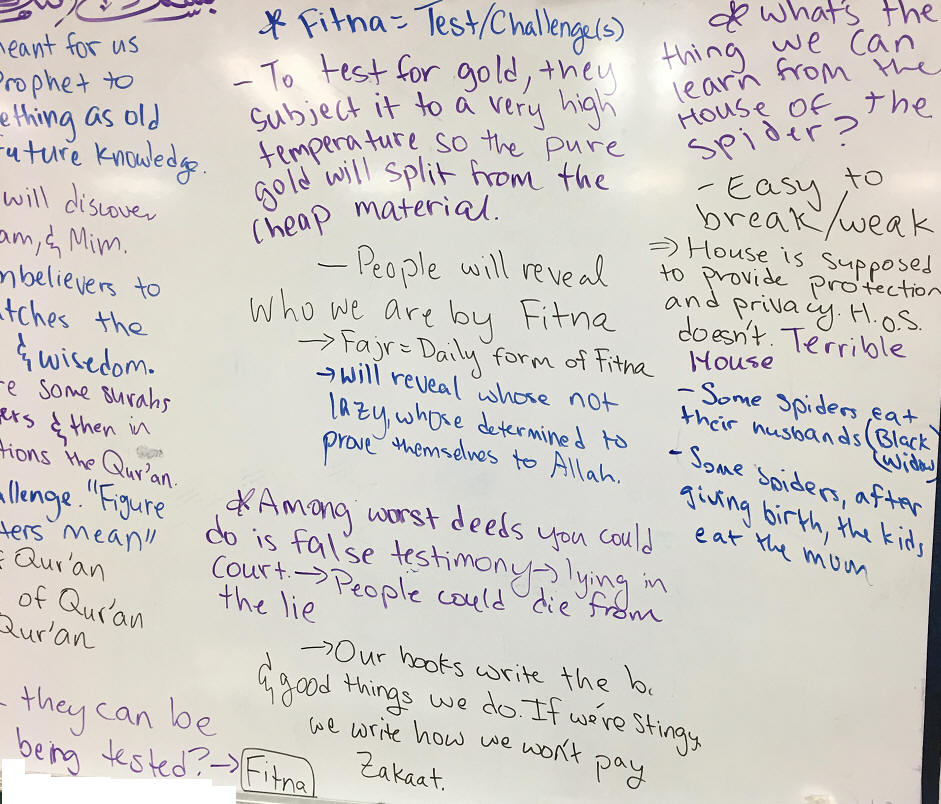 meant for us
Prophet to
ething as old
future knowledge.
will discover
am, & Mim.
nbelievers to
tches the
& wisedom.
re some surahs
ers & then in
tions the Qur'an.
allenge. "Figure
ters mean"
Qur'an
of Qur'an
Qur'an
they can be
being tested? → Fitna
* Fitna = Test/Challenge(s)
- To test for gold, they
subject it to a very high
temperature so the pure
gold will split from the
cheap material.
- People will reveal
who we are by Fitna
→ Fajr = Daily form of Fitna
→ will reveal whose not
lazy, whose determined to
prove themselves to Allah.
* Among worst deeds you could
do is false testimony → lying in
court. → People could die from
the lie
→ Our books write the b
& good things we do. If we're stingy
we write how we won't pay
Zakaat.
* What's the
thing we can
learn from the
House of the
spider?
- Easy to
break/weak
⇒ House is supposed
to provide protection
and privacy. H.o.S.
doesn't. Terrible
House
- Some spiders eat
their husbands (Black
Widow)
- Some spiders, after
giving birth, the kids
eat the mum